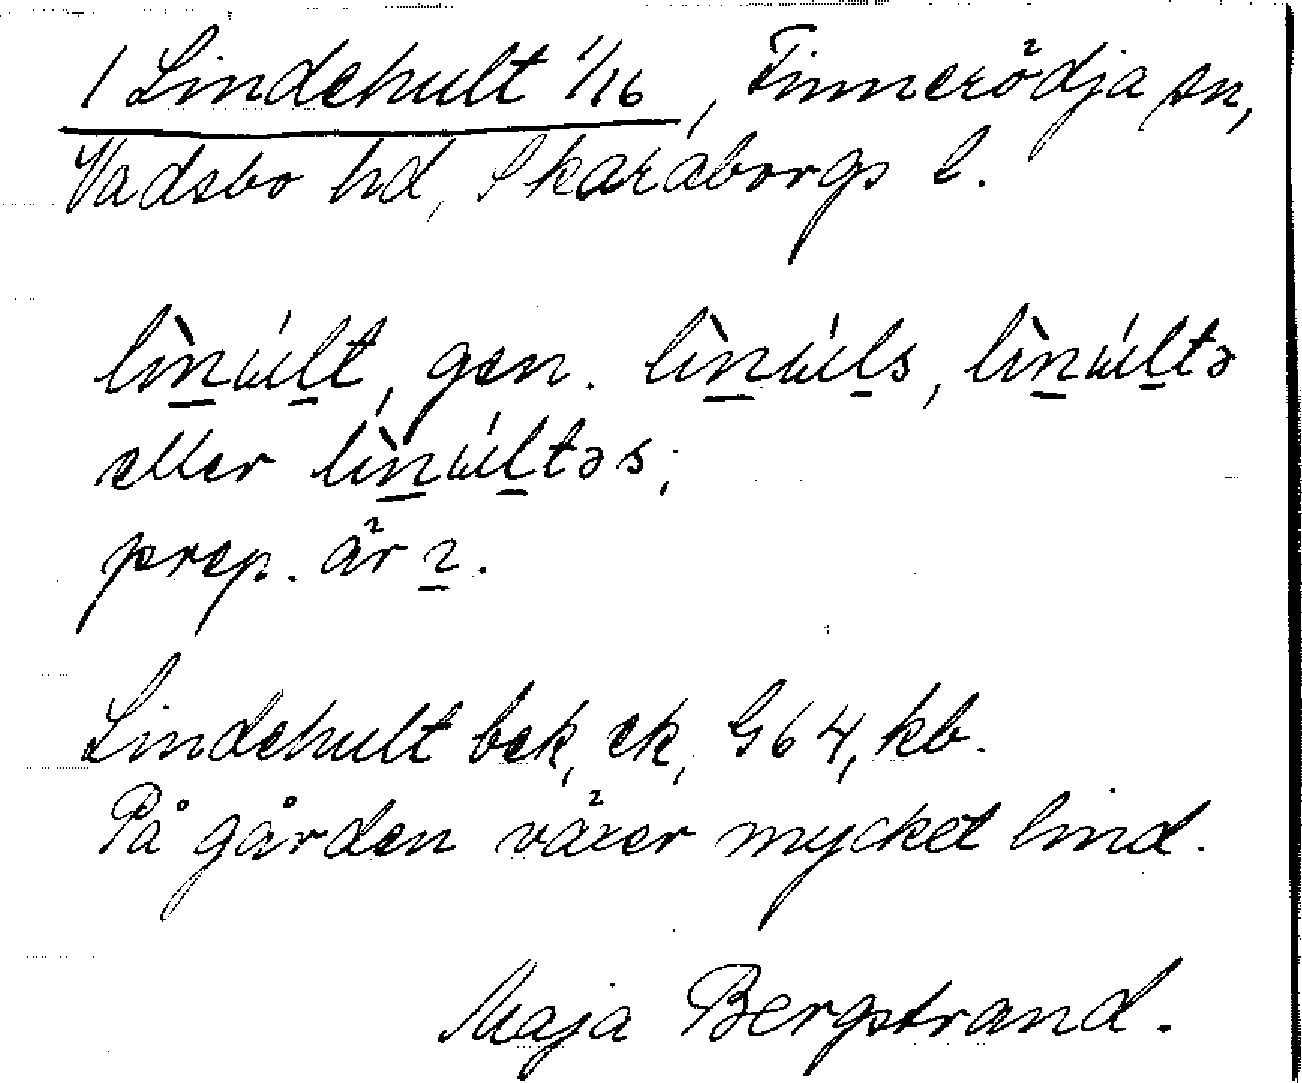 1 Lindehult 1/16, Finnerödja sn,
Vadsbo hd, Skaraborgs l.
lìnúlt, gen. lìnúls, lìnúltə
eller lìnúltəs;
prep. är 2.
Lindehult bek, ek, G64, kb.
På gården växer mycket lind.
Maja Bergstrand.